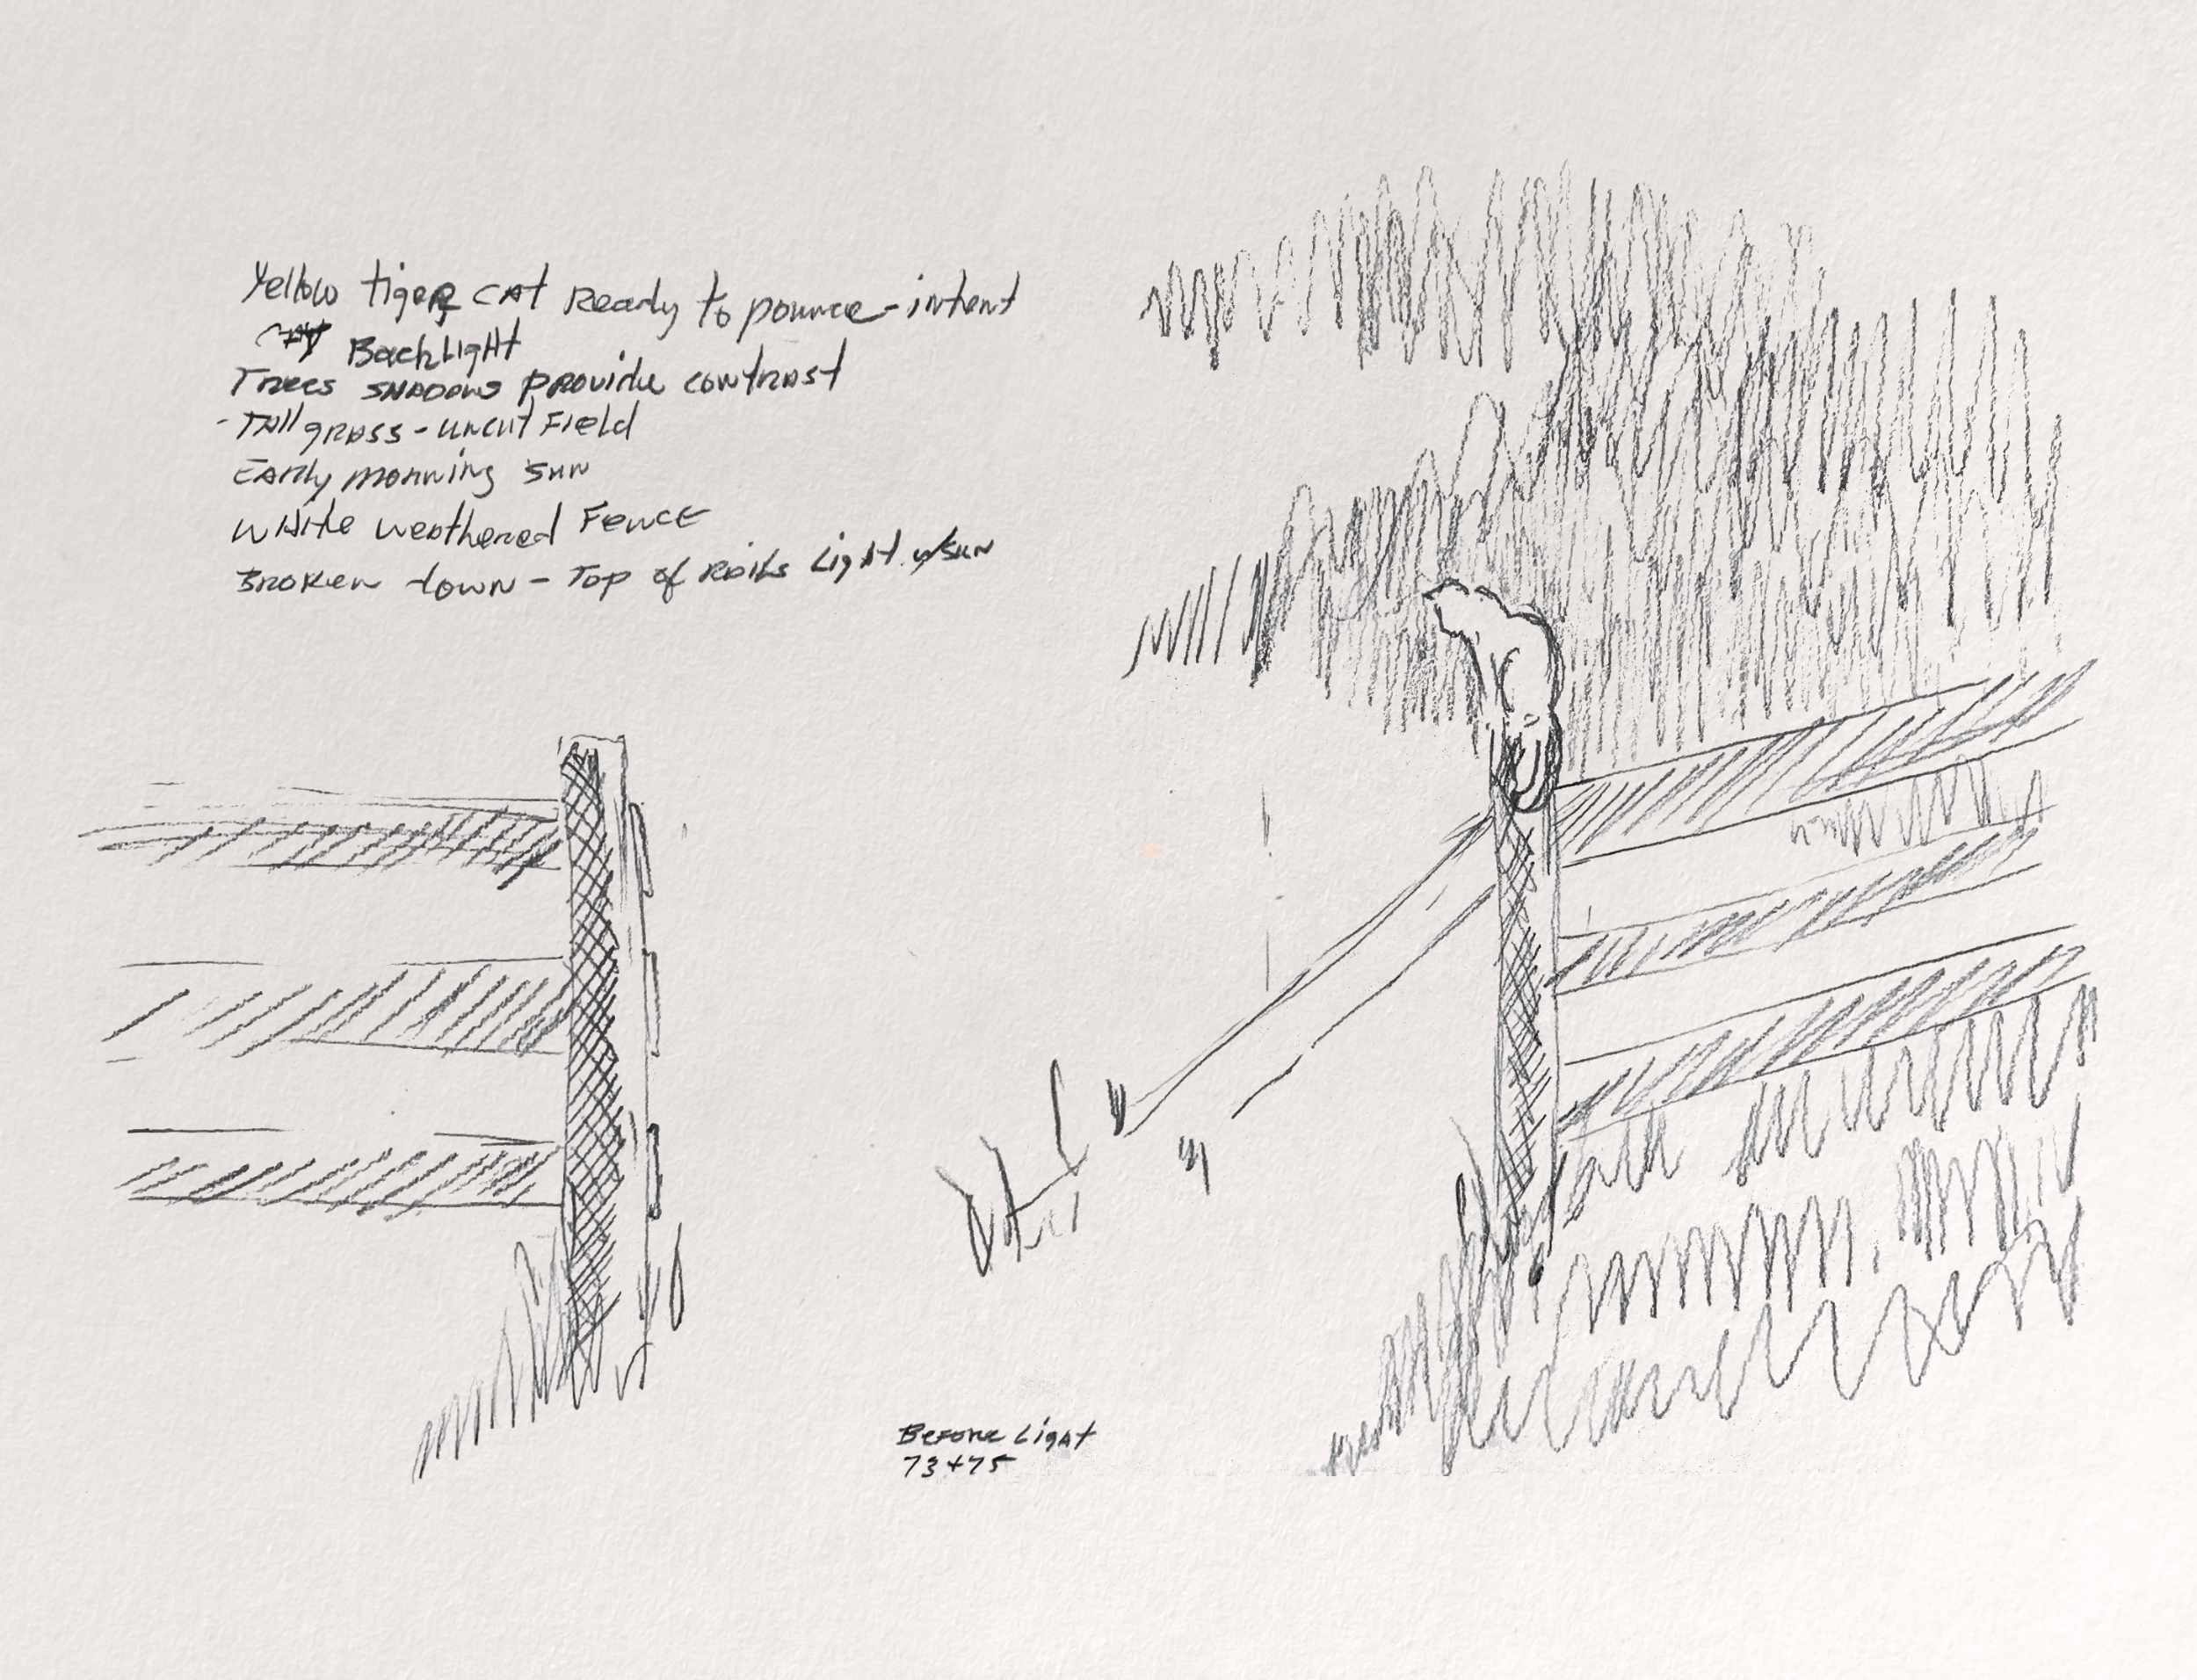 Yellow tiger cat Ready to pounce - intent
Backlight
Trees shadows provide contrast
- Tall grass - uncut Field
Early morning sun
White weathered Fence
Broken down - Top of Rails Light w/sun
Before Light
73 + 75